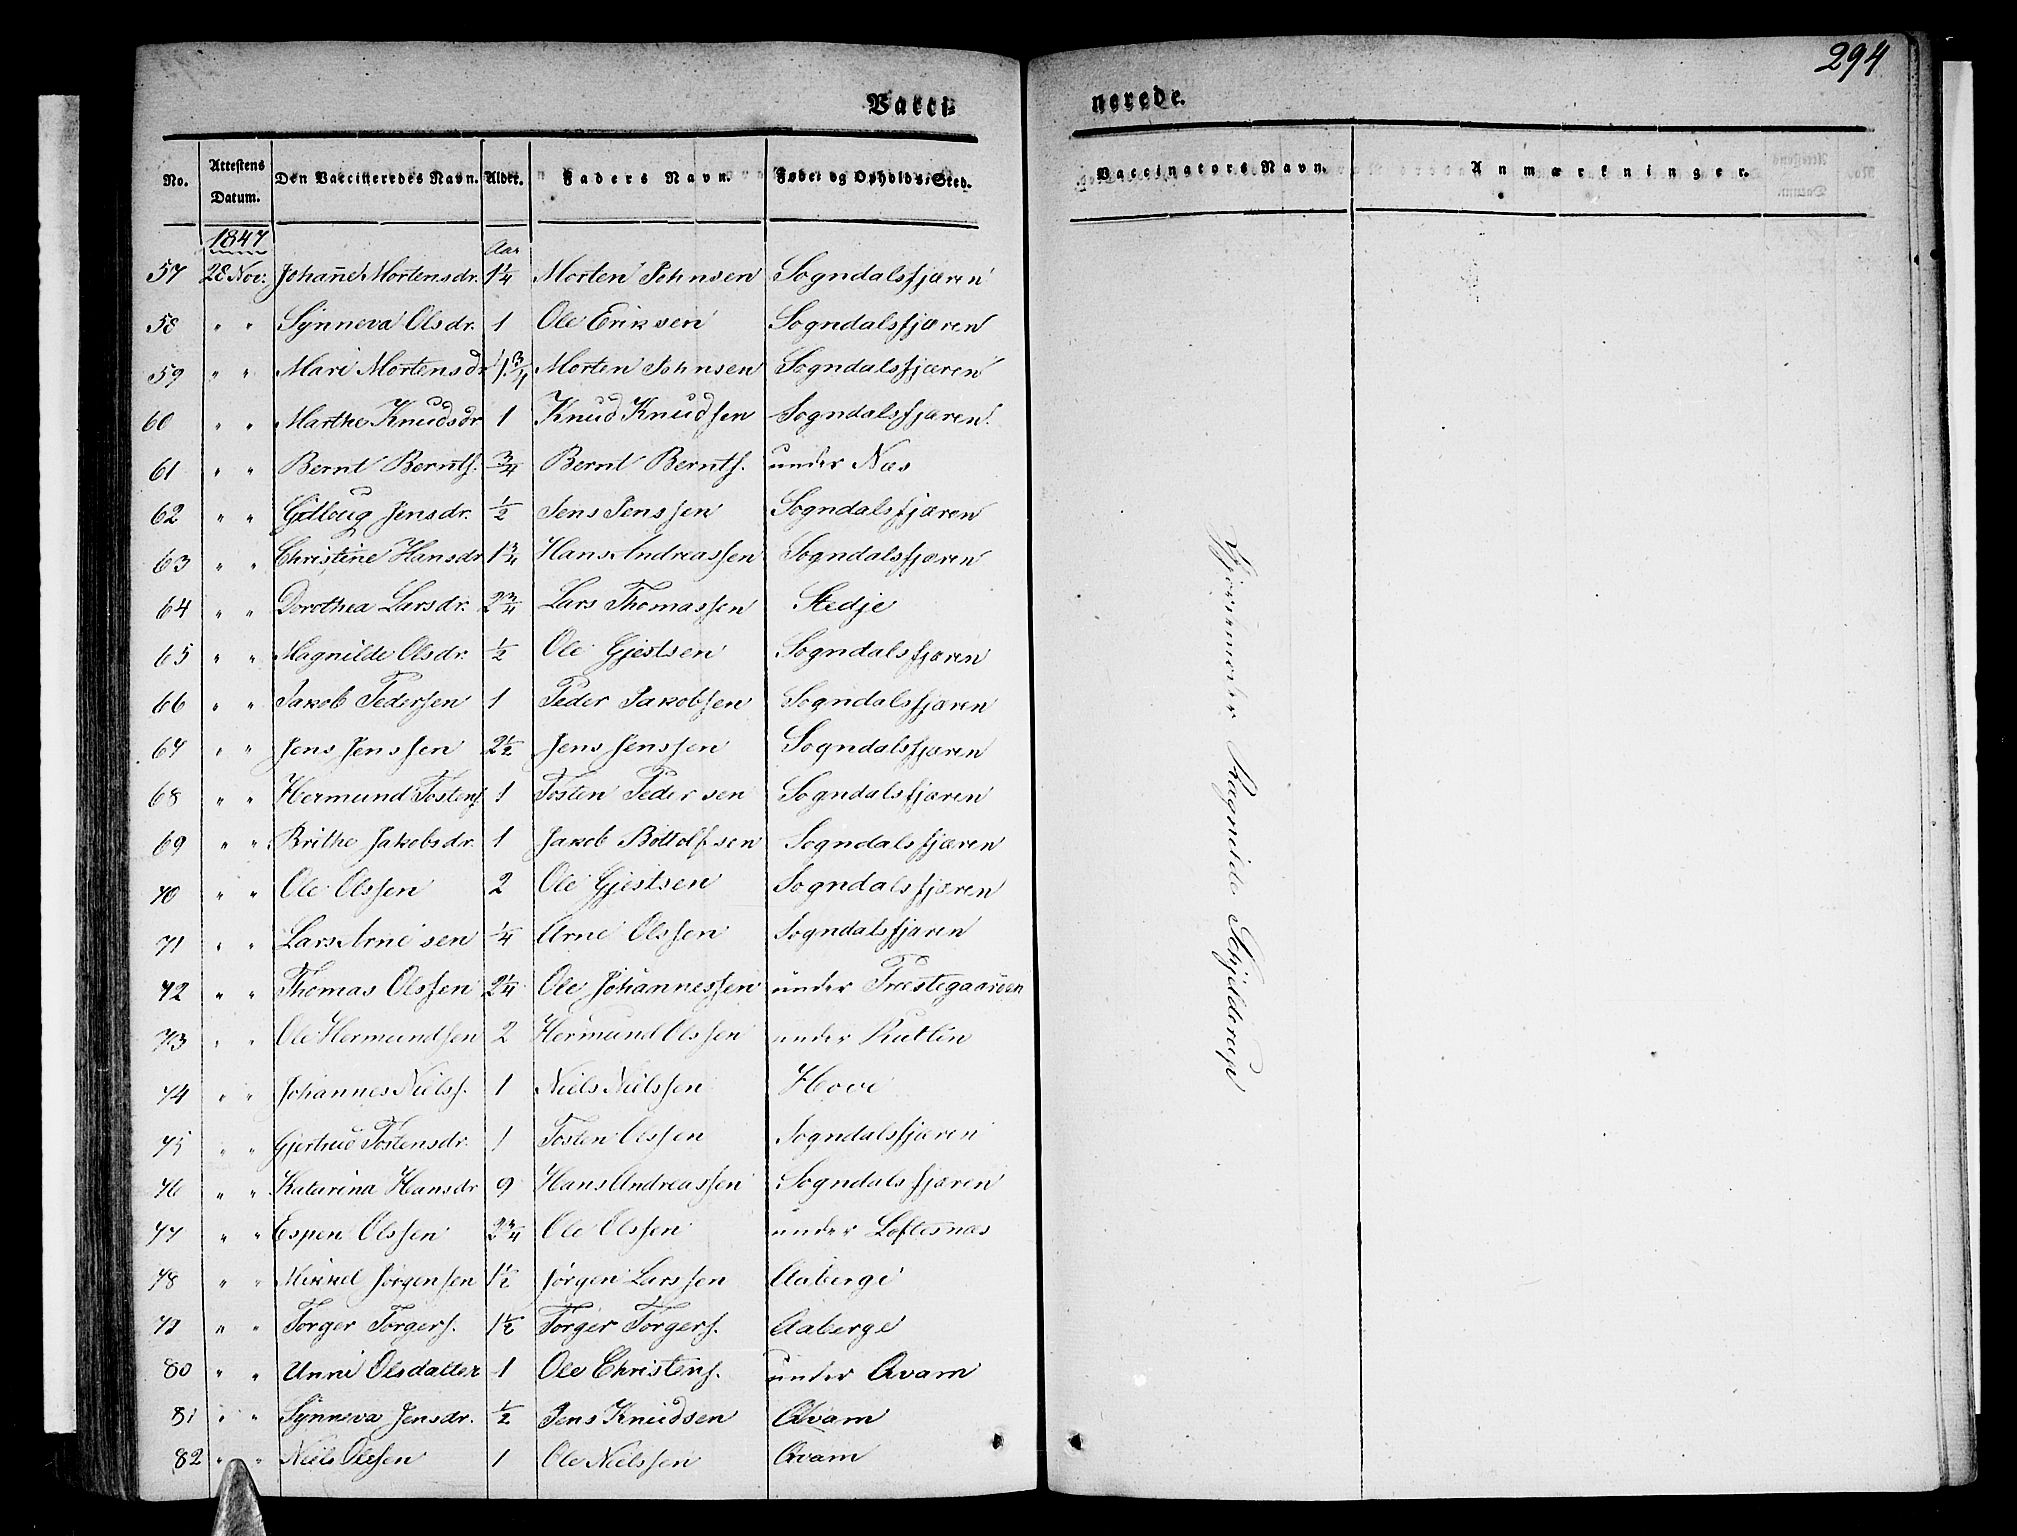 294
Vacci-
nerede.
No. Attestens Datum. Den Vaccineredes Navn. Alder. Faders Navn. Fødes og Opholds-Sted.
Vaccinators Navn. Anmærkninger.
1847 Aar
57 28 Nov. Johanne Mortensdr. 1¼ Morten Johnsen Sogndalsfjæren
58 " " Synneva Olsdr. 1 Ole Eriksen Sogndalsfjæren
59 " " Mari Mortensdr 1¾ Morten Johnsen Sogndalsfjæren
60 " " Marthe Knudsdr 1 Knud Knudsen Sogndalsfjæren
61 " " Bernt Bernts. ¾ Bernt Bernts. under Næs
62 " " Gidloug Jensdr. ½ Jens Jenssen Sogndalsfjæren
63 " " Christine Hansdr 1¾ Hans Andreassen Sogndalsfjæren
64 " " Dorothea Larsdr. 2¾ Lars Thomassen Stedje
65 " " Magnilde Olsdr. ½ Ole Gjestsen Sogndalsfjæren
66 " " Jakob Pedersen 1 Peder Jakobsen Sogndalsfjæren
67 " " Jens Jenssen 2½ Jens Jenssen Sogndalsfjæren
68 " " Hermund Tostens. 1 Tosten Pedersen Sogndalsfjæren
69 " " Brithe Jakobsdr. 1 Jakob Bottolfsen Sogndalsfjæren
70 " " Ole Olssen 2 Ole Gjestsen Sogndalsfjæren
71 " " Lars Arnesen ¼ Arne Olssen Sogndalsfjæren
72 " " Thomas Olssen 2¼ Ole Johannessen under Præstegaarden
73 " " Ole Hermundsen 2 Hermund Olssen under Kutlin
74 " " Johannes Nielss. 1 Niels Nielssen Hove
75 " " Gjertrud Tostensdr. 1 Tosten Olssen Sogndalsfjæren
76 " " Katarina Hansdr 9 Hans Andreassen Sogndalsfjæren
77 " " Espen Olssen 2¾ Ole Olssen under Loftesnæs
78 " " Mikkel Jørgensen 1½ Jørgen Larssen Aaberge
79 " " Torger Torgers. 1½ Torger Torgers. Aaberge
80 " " Unni Olsdatter 1 Ole Christens. under Qvam
81 " " Synneva Jensdr. ½ Jens Knudsen Qvam
82 " " Niels Olssen 1 Ole Nielssen Qvam
Gjorsemoder Ragnilde Skjelderup